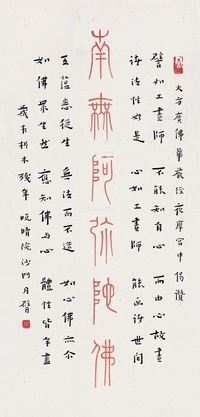 大方廣佛華嚴經夜摩宮中偈讚
譬如工畫師 不能知自心 而由心故畫
諸法性如是 心如工畫師 能畫諸世間
南無阿弥陀佛
五蘊悉從生 無法而不造 如心佛亦尔
如佛眾生然 應知佛與心 體性皆無盡
歲在析木殘年 晚晴院沙門月臂